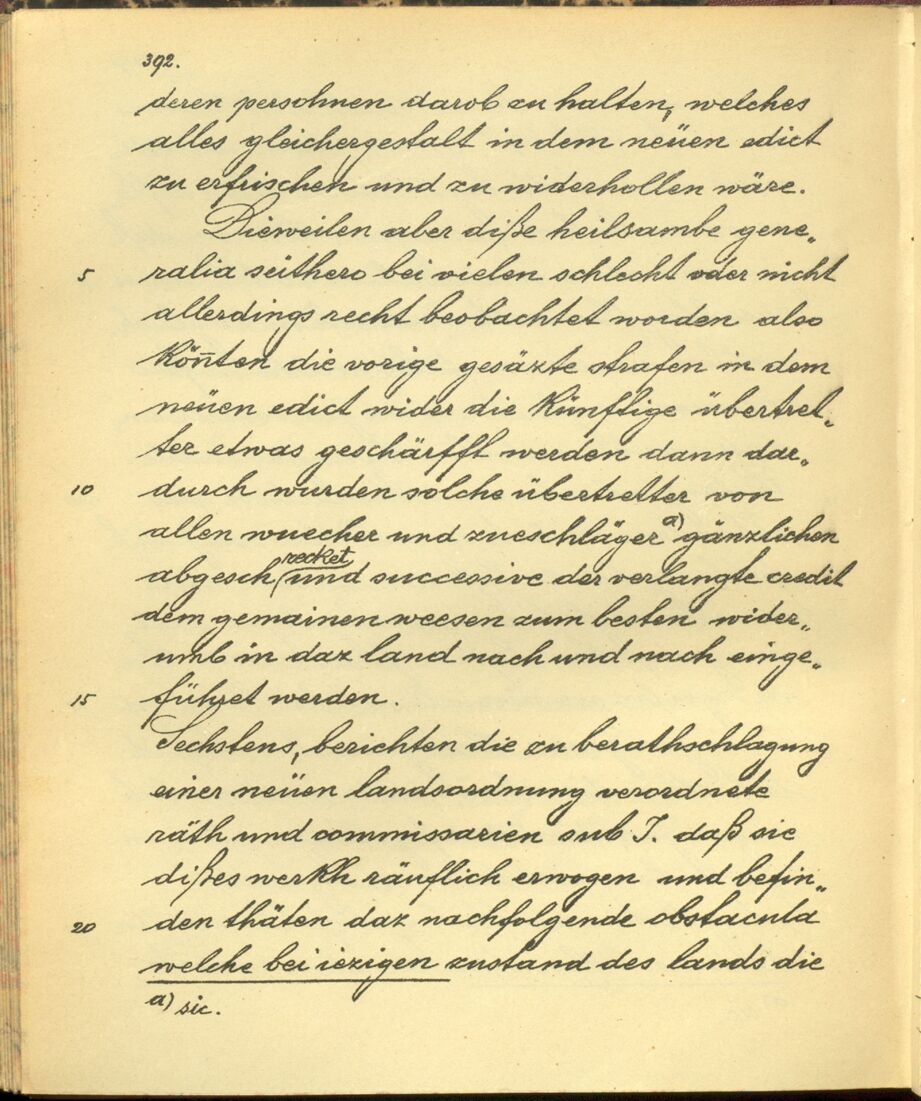 392.
deren persohnen darob zu halten, welches
alles gleichergestalt in dem neüen edict
zu erfrischen und zu widerhollen wäre.
Dieweilen aber diße heilsambe gene„
5 ralia seithero bei vielen schlecht oder nicht
allerdings recht beobachtet worden also
könnten die vorige gesäzte strafen in dem
neüen edict wider die künftige übertret„
ter etwas geschärfft werden dann dar„
10 durch wurden solche übertretter von
allen wuecher und zueschläger a) gänzlichen
abgeschrecket und successive der verlangte credit
dem gemainen weesen zum besten wider„
umb in daz land nach und nach einge„
15 führet werden.
Sechstens, berichten die zu berathschlagung
einer neüen landsordnung verordnete
räth und commissarien sub J. daß sie
dißes werkh räuflich erwogen und befin„
20 den thäten daz nachfolgende obstacula
welche bei iezigen zustand des lands die
a) sic.